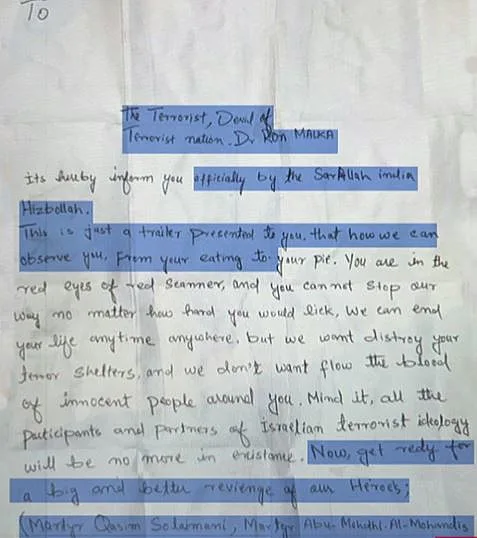 To
The Terrorist, Devil of
Terrorist nation. Dr Ron MALKA
Its hereby inform you officially by the SarAllah india
Hizbollah.
This is just a trailer presented to you, that how we can
observe you, From your eating to your pie. You are in the
red eyes of red scanner, and you can not stop our
way no matter how hard you would lick, We can end
your life anytime anywhere, but we want distroy your
terror shelters, and we don't want flow the blood
of innocent people around you. Mind it, all the
participants and partners of Israelian terrorist ideology
will be no more in existance. Now, get redy for
a big and better revienge of our Heroes;
(Martyr Qasim Solaimani, Martyr Abu-Mehdhi-Al-Mohandis